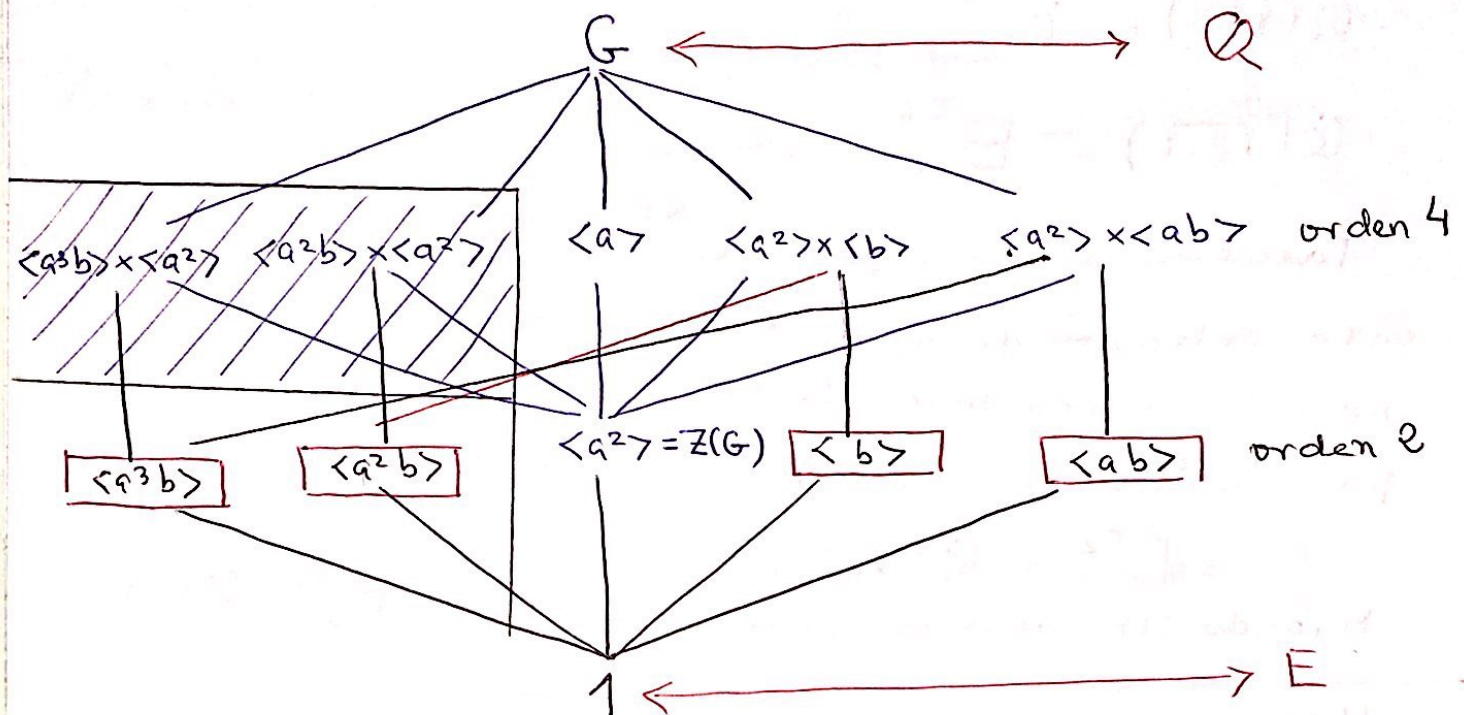 G ⟷ Q
<a³b>x<a²> <a²b>x<a²> <a> <a²>x<b> <a²>x<ab> orden 4
<a³b> <a²b> <a²>=Z(G) <b> <ab> orden 2
1 ⟷ E